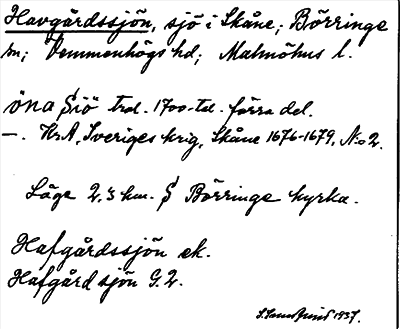 Havgårdssjön, sjö i Skåne; Börringe
sn; Vemmenhögs hd; Malmöhus l.
öna Siö trol. 1700-tal. förra del.
—. KrA, Sveriges krig, Skåne 1676-1679, No 2.
Läge 2,3 km. S Börringe kyrka.
Hafgårdssjön ek.
Hafgård sjön G.2.
1937.